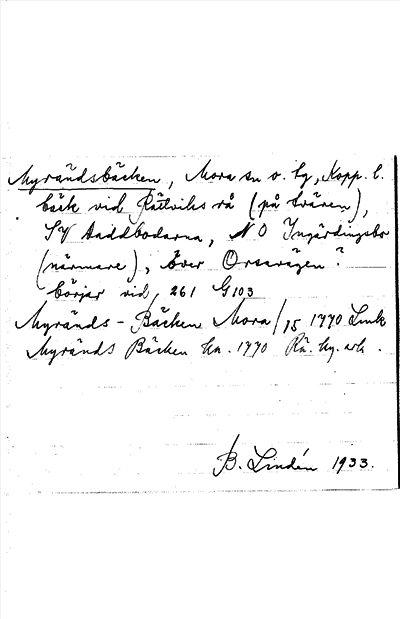 Myrändsbäcken, Mora sn o. tg, Kopp. l.
bäck vid Rättviks rå (på tvären),
SV addbodarna, NO Ingärdingsbo
(närmare), över Orsavägen?
börjar vid 261 G103
Myränds-Bäcken Mora/15 1770 Lmk
Myränds Bäcken ka. 1770 Rå. hg. ark.
B. Lindén 1933.